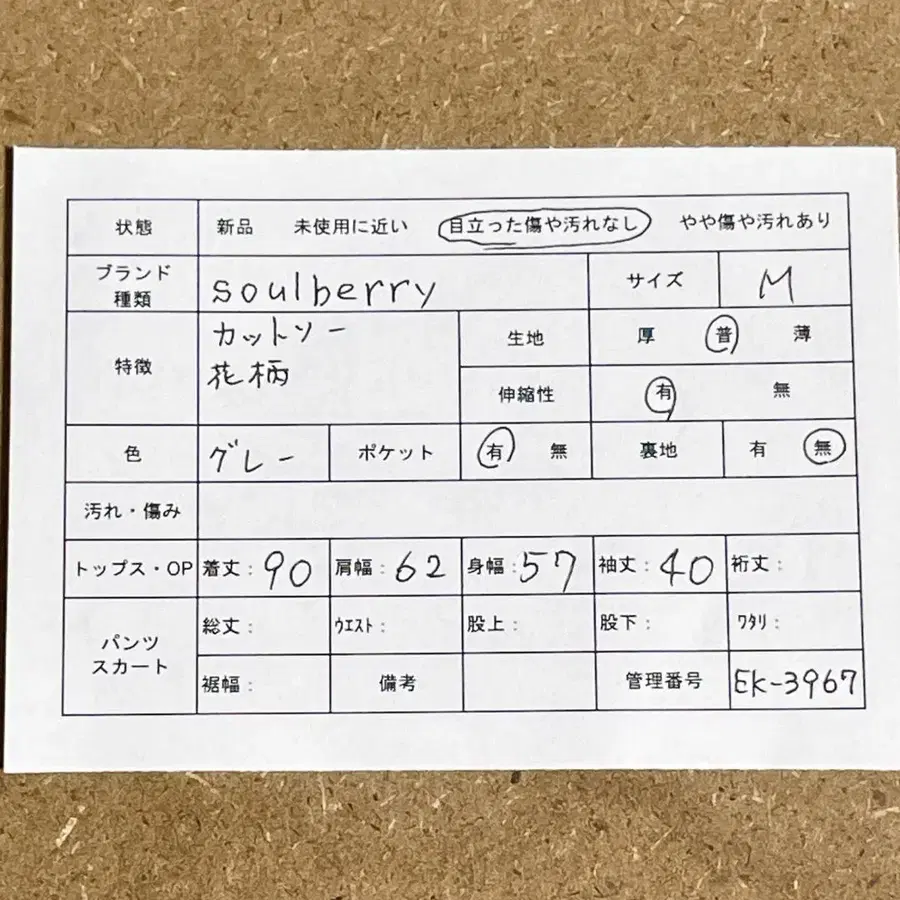 状態 新品 未使用に近い 目立った傷や汚れなし やや傷や汚れあり
ブランド
種類 soulberry サイズ M
特徴 カットソー
花柄
生地 厚 普 薄
伸縮性 有 無
色 グレー ポケット 有 無 裏地 有 無
汚れ・傷み
トップス・OP 着丈:90 肩幅:62 身幅:57 袖丈:40 裄丈:
パンツ
スカート
総丈: ウエスト: 股上: 股下: ワタリ:
裾幅: 備考 管理番号 EK-3967